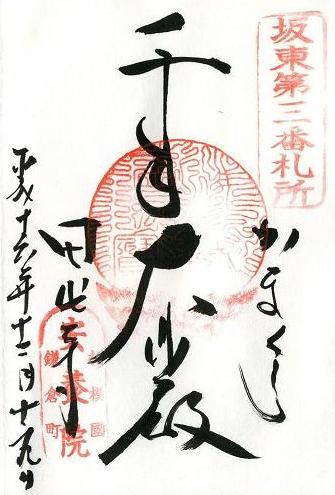 坂東第三番札所
かまくら
千手大悲殿
田代寺
平成十六年十二月十九日
相模國
安養院
鎌倉町